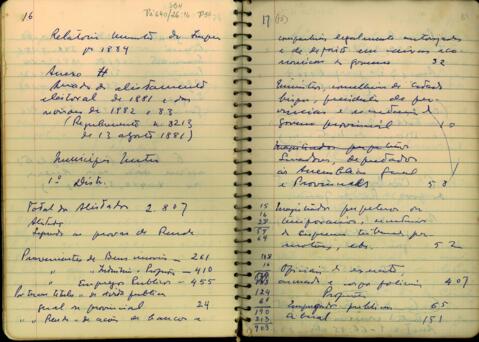 16
Relatório Minist. do Imper.
pº 1884
Anexo H
Quadro de alistamento
eleitoral de 1881 e das
revisões de 1882 e 83
(Regulamento n. 8213
de 13 agosto 1881)
Município Neutro
1º Distr.
Total da Alistados 2.807
Alistados
segundo as provas de Renda
Provenientes de Bens imoveis — 261
" " Indústria e Profissão — 410
" " Empregos Publicos — 455
Por terem titulos de divida publica
geral ou provincial 24
" " Renda de ações de bancos e
17
companhias legalmente autorizadas
e de deposito em caixas eco-
nomicas do governo 32
Ministros, conselheiros de Estado
bispos, presidentes de pro-
vincias e secretarios de
governo provincial 10
Magistrados perpetuos
Senadores, deputados
às Assembleias geral
e Provinciais 58
15
16
Magistrados perpetuos ou
temporarios, secretarios
de Supremo tribunal, pro-
motores, etc. 52
64
168
16
Oficiais de
armada e corpo policial 407
124
61
190
313
903
Empregados publicos 65
151